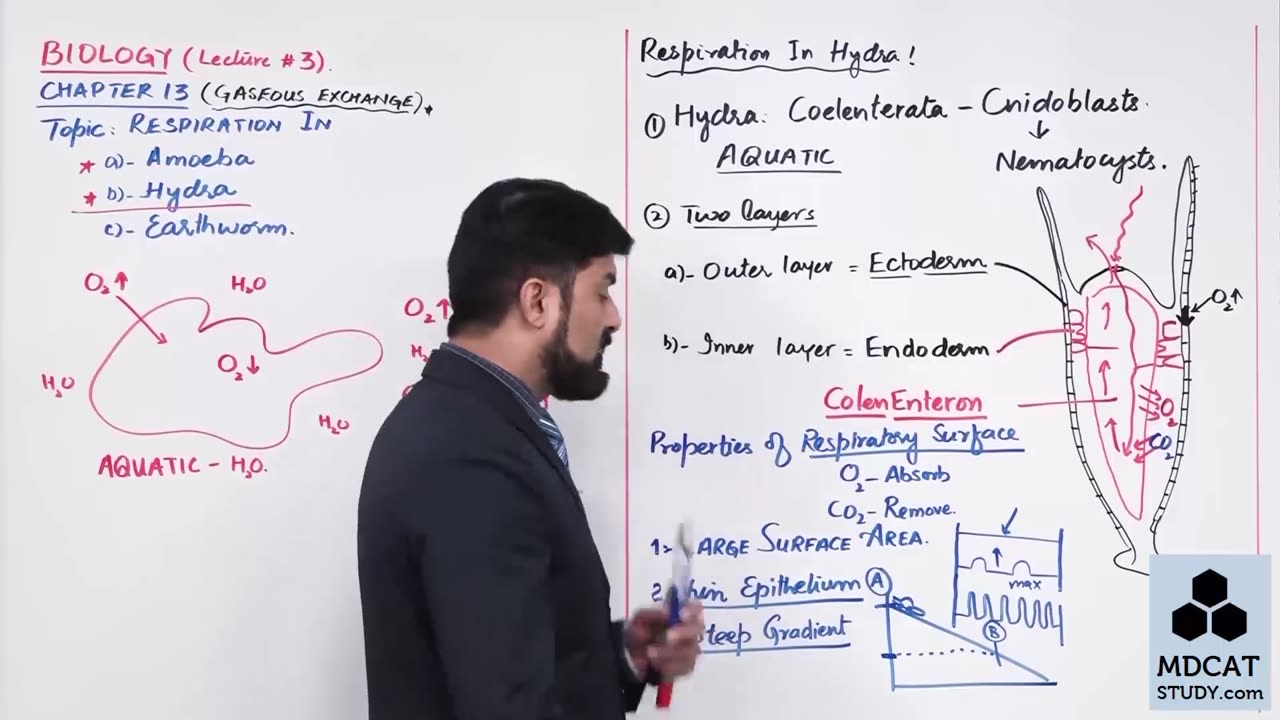 BIOLOGY (Lecture #3).
CHAPTER 13 (GASEOUS EXCHANGE).
Topic: RESPIRATION IN
* a)- Amoeba
* b)- Hydra
c)- Earthworm.
O₂↑
H₂O
O₂↓
H₂O
H₂O
AQUATIC - H₂O.
O₂↑
Respiration In Hydra!
① Hydra: Coelenterata - Cnidoblasts.
↓
AQUATIC
Nematocysts.
② Two layers
a)- Outer layer = Ectoderm
O₂↑
b)- Inner layer = Endoderm
ColenEnteron
O₂
CO₂
Properties of Respiratory Surface
O₂ - Absorb
CO₂ - Remove.
ARGE SURFACE AREA.
max
Epithelium
A
Gradient
B
MDCAT
STUDY.com